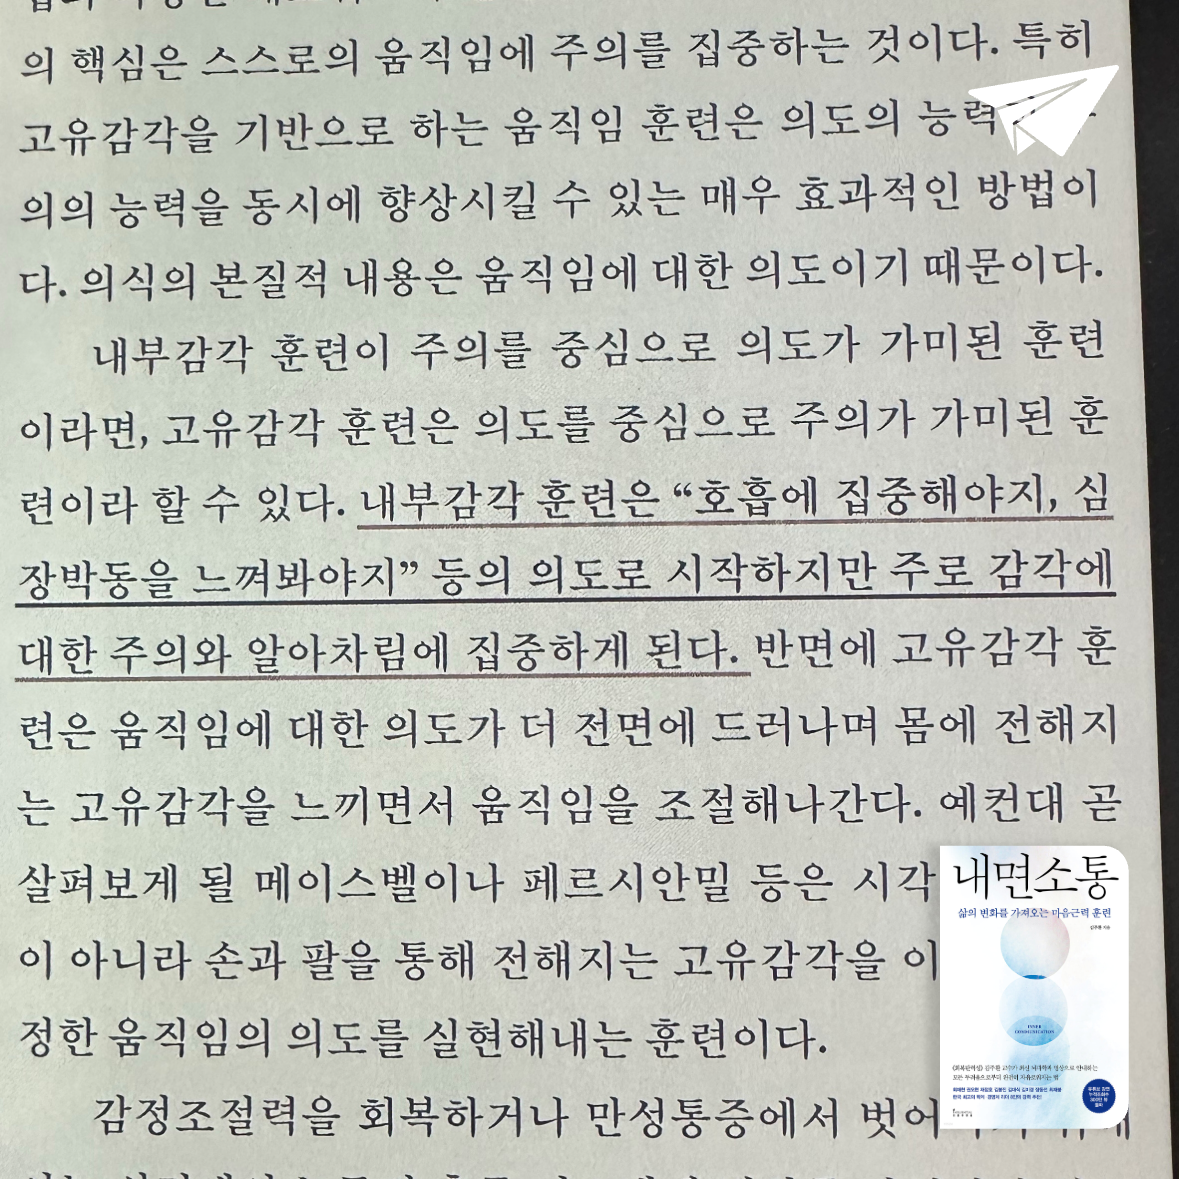 의 핵심은 스스로의 움직임에 주의를 집중하는 것이다. 특히
고유감각을 기반으로 하는 움직임 훈련은 의도의 능력
의의 능력을 동시에 향상시킬 수 있는 매우 효과적인 방법이
다. 의식의 본질적 내용은 움직임에 대한 의도이기 때문이다.
내부감각 훈련이 주의를 중심으로 의도가 가미된 훈련
이라면, 고유감각 훈련은 의도를 중심으로 주의가 가미된 훈
련이라 할 수 있다. 내부감각 훈련은 “호흡에 집중해야지, 심
장박동을 느껴봐야지” 등의 의도로 시작하지만 주로 감각에
대한 주의와 알아차림에 집중하게 된다. 반면에 고유감각 훈
련은 움직임에 대한 의도가 더 전면에 드러나며 몸에 전해지
는 고유감각을 느끼면서 움직임을 조절해나간다. 예컨대 곧
살펴보게 될 메이스벨이나 페르시안밀 등은 시각
이 아니라 손과 팔을 통해 전해지는 고유감각을 이
정한 움직임의 의도를 실현해내는 훈련이다.
감정조절력을 회복하거나 만성통증에서 벗어
내면소통
삶의 변화를 가져오는 마음근력 훈련
김주환 지음
INNER
COMMUNICATION